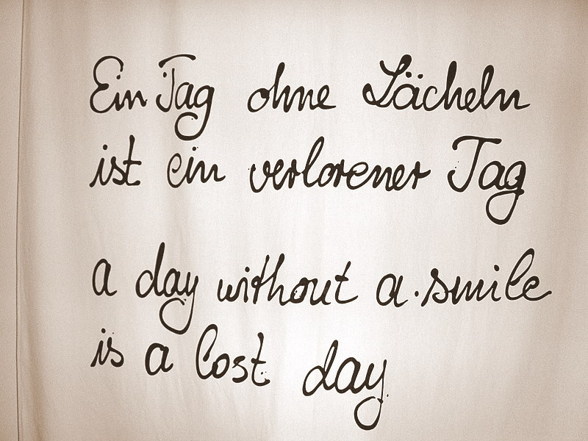 Ein Tag ohne Lächeln
ist ein verlorener Tag
a day without a smile
is a lost day